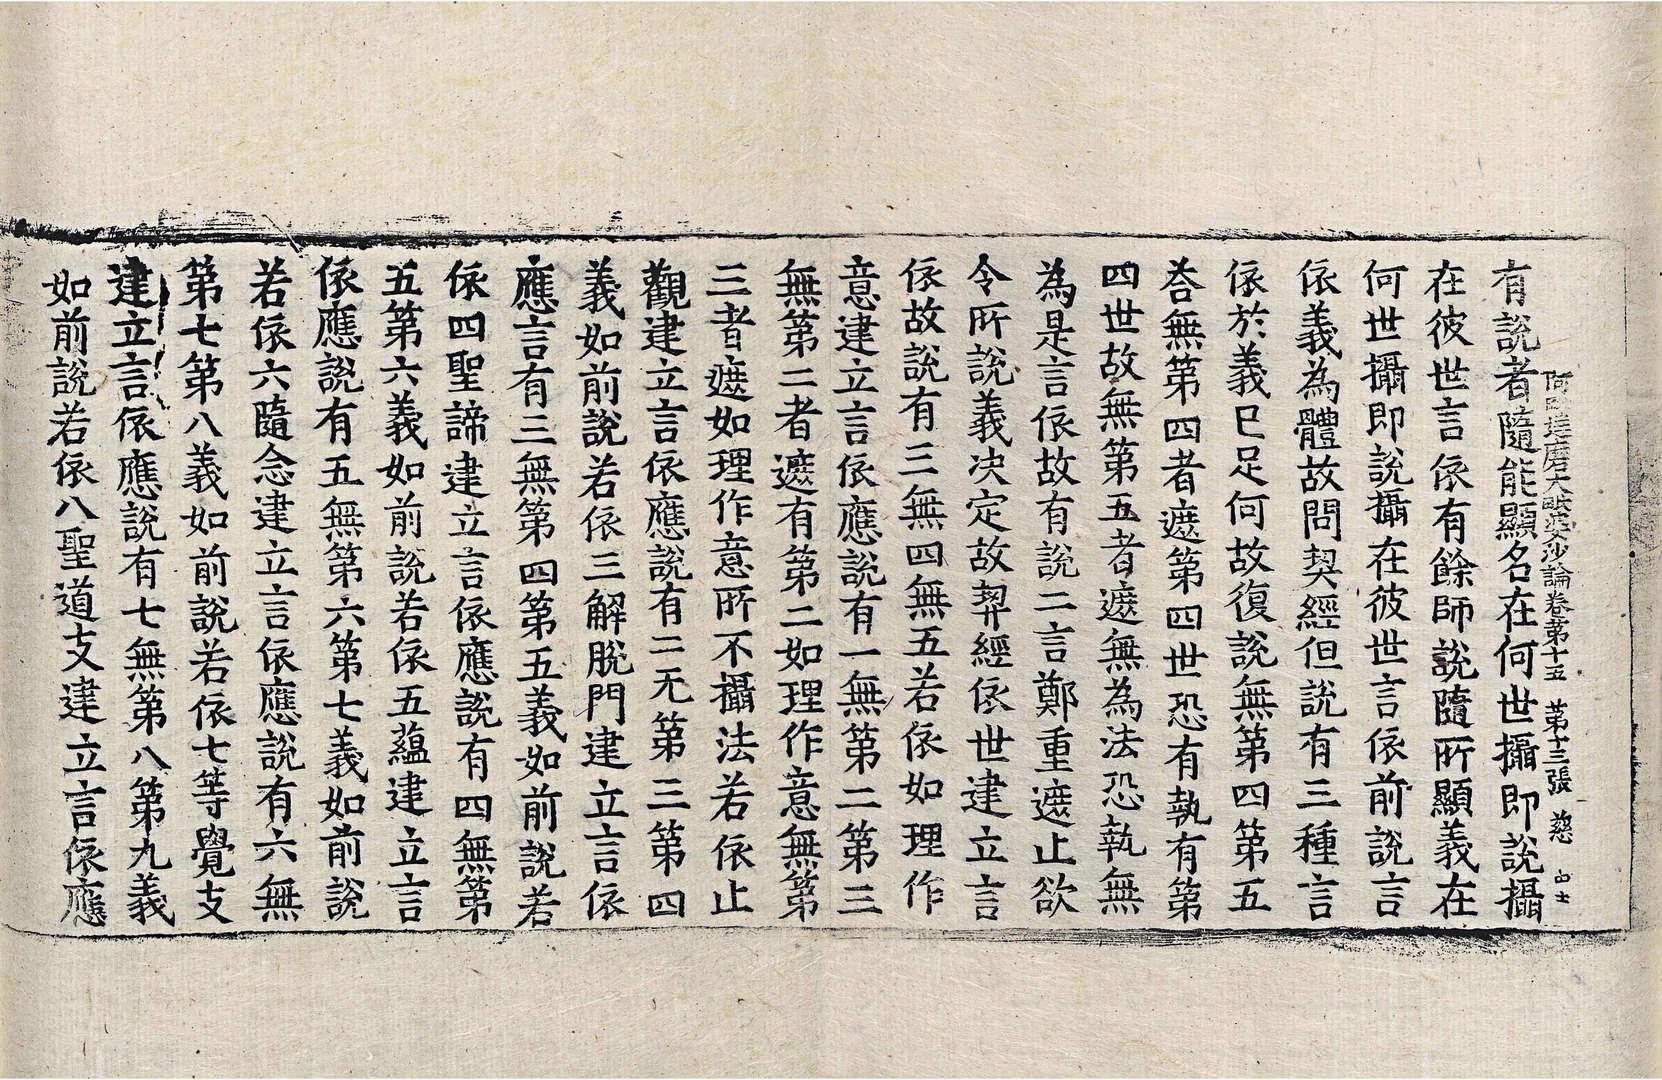 阿毗達磨大毗婆沙論卷第十五 第十三張 慈
有說者隨能顯名在何世攝即說攝
在彼世言依有餘師說隨所顯義在
何世攝即說攝在彼世言依前說言
依義為體故問契經但說有三種言
依於義已足何故復說無第四第五
荅無第四者遮第四世恐有執有第
四世故無第五者遮無為法恐執無
為是言依故有說二言鄭重遮止欲
令所說義决定故契經依世建立言
依故說有三無四無五若依如理作
意建立言依應說有一無第二第三
無第二者遮有第二如理作意無第
三者遮如理作意所不攝法若依止
觀建立言依應說有二无第三第四
義如前說若依三解脫門建立言依
應言有三無第四第五義如前說若
依四聖諦建立言依應說有四無第
五第六義如前說若依五蘊建立言
依應說有五無第六第七義如前說
若依六隨念建立言依應說有六無
第七第八義如前說若依七等覺支
建立言依應說有七無第八第九義
如前說若依八聖道支建立言依應